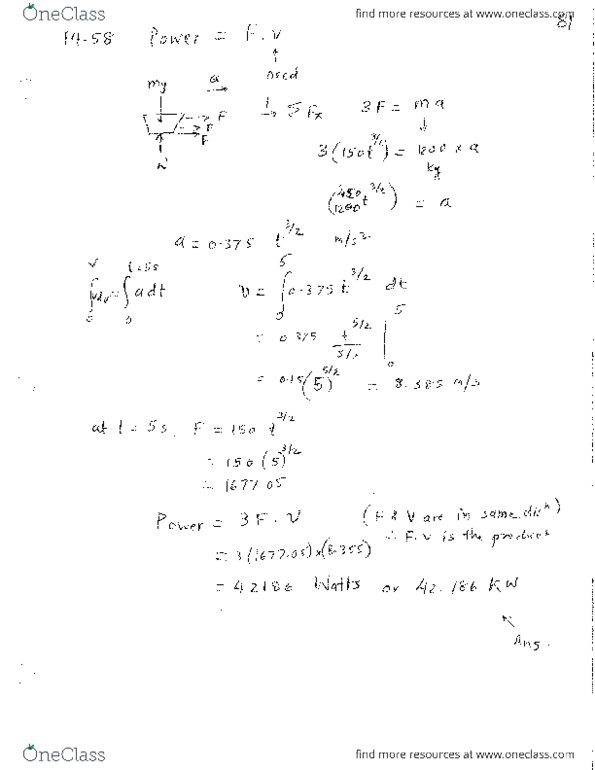 OneClass
find more resources at www.oneclass.com
81
14-58 Power = F.v
↑
need
mg a
F
F
F
N
→ Σ Fx 3F = ma
↓
3(150t^3/2) = 1200 x a
kg
(450/1200 t^3/2) = a
a = 0.375 t^3/2 m/s²
∫ dv = ∫ a dt
v
0
t=5s
0
v = ∫ 0.375 t^3/2 dt
5
0
= 0.375 t^5/2 / 5/2 |
5
0
= 0.15(5)^5/2 = 8.385 m/s
at t = 5s, F = 150 t^3/2
= 150 (5)^3/2
= 1677.05
Power = 3F.V (F & V are in same
∴ F.v is the product
= 3(1677.05)x(8.355)
= 42186 Watts or 42.186 KW
Ans.
OneClass
find more resources at www.oneclass.com